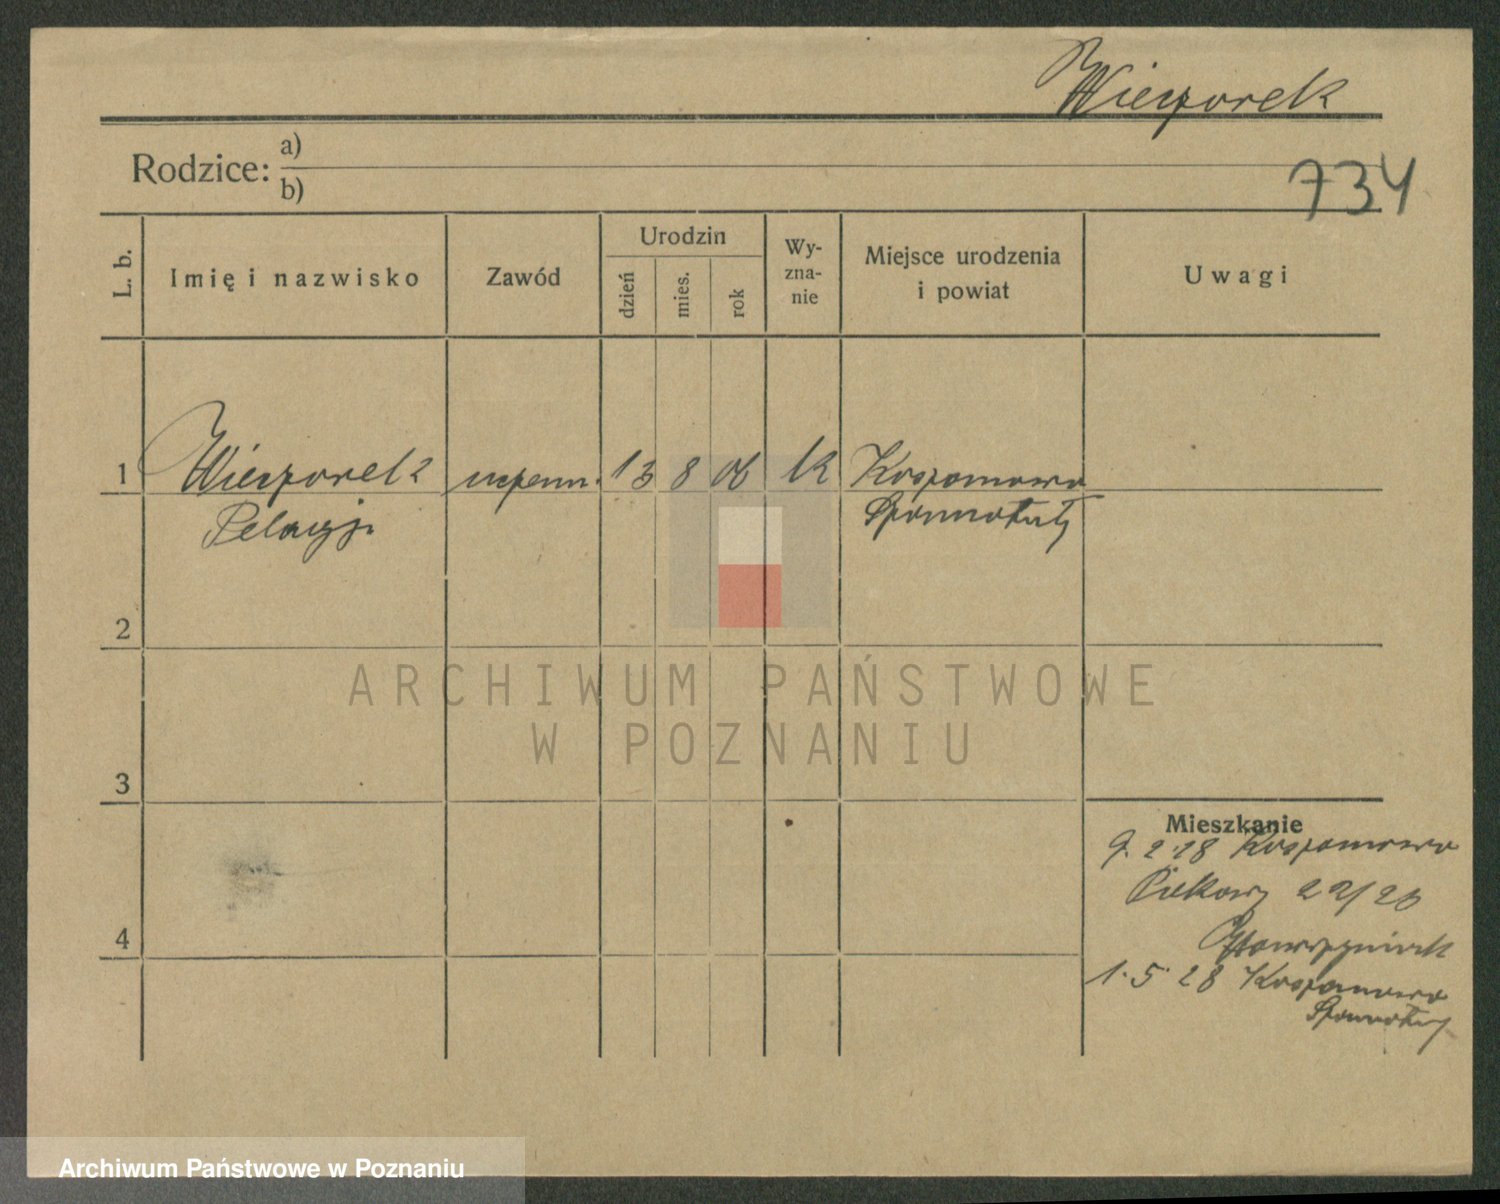 Wieczorek
Rodzice: a)
b)
734
L. b.
Imię i nazwisko
Zawód
Urodzin
dzień
mies.
rok
Wy-
zna-
nie
Miejsce urodzenia
i powiat
Uwagi
1
Wieczorek
Pelagja
13 8 06 k
Szamotuły
2
3
4
Mieszkanie
9. 2. 28
Piekary 22/23
Wawrzyniak
1. 5. 28
Szamotuły
ARCHIWUM PAŃSTWOWE
W POZNANIU
Archiwum Państwowe w Poznaniu